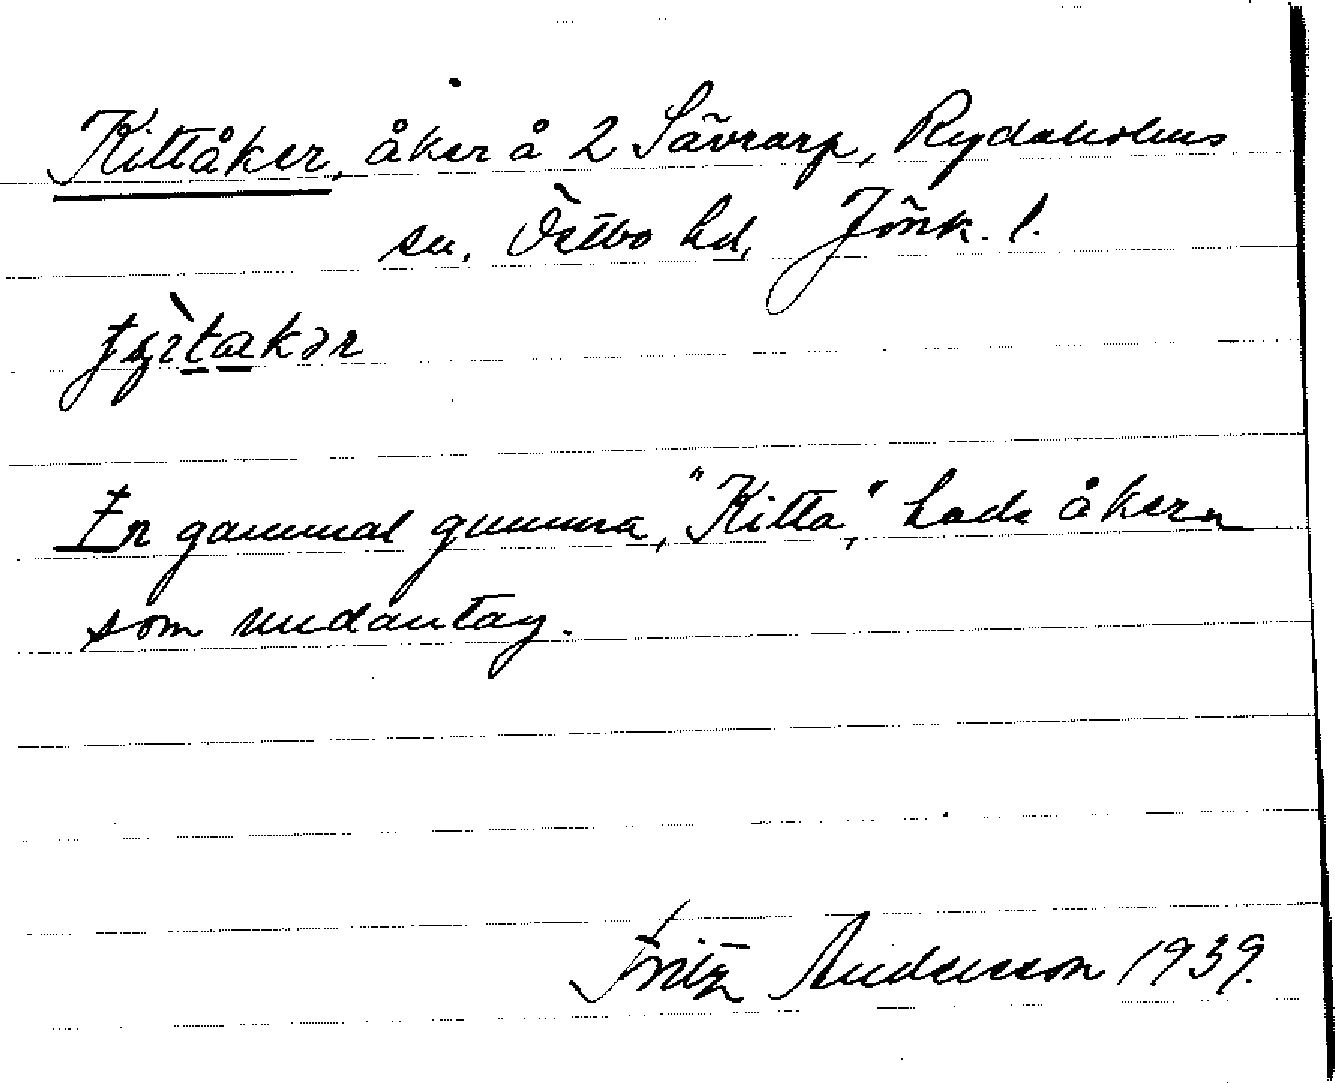 Kittåker, åker å 2 Sävrarp, Rydaholms
sn. Östbo hd, Jönk. l.
En gammal gumma, "Kitta", hade åkern
som undantag.
Fritz Andersson 1939.